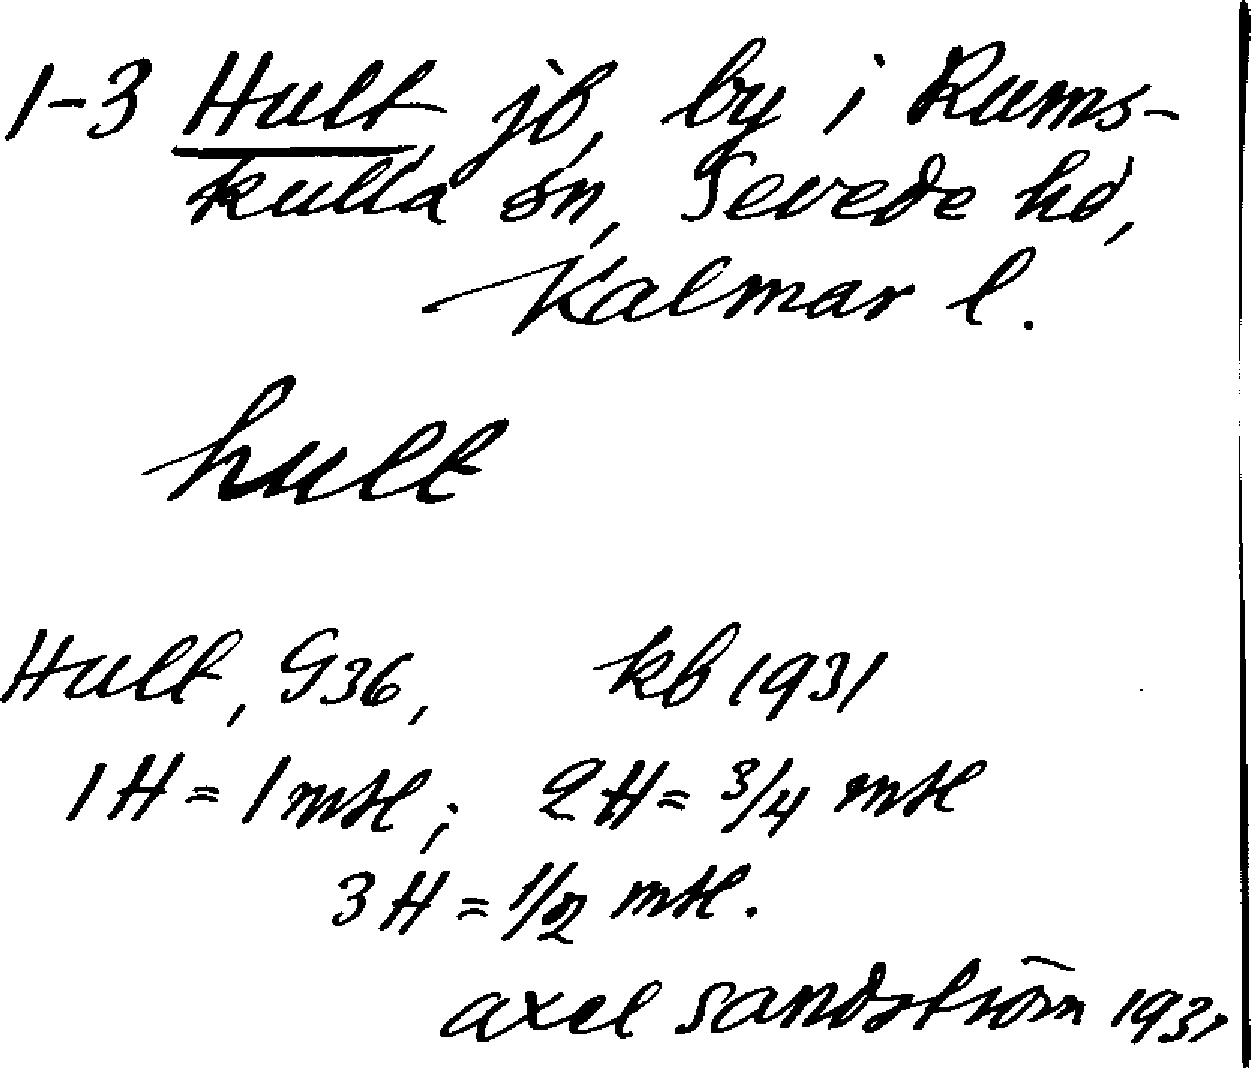 1-3 Hult jb, by i Rums-
kulla sn, Sevede hd,
Kalmar l.
hult
Hult, G36, kb 1931
1 H = 1 mtl; 2 H = 3/4 mtl
3 H = 1/2 mtl.
axel sandström 1931